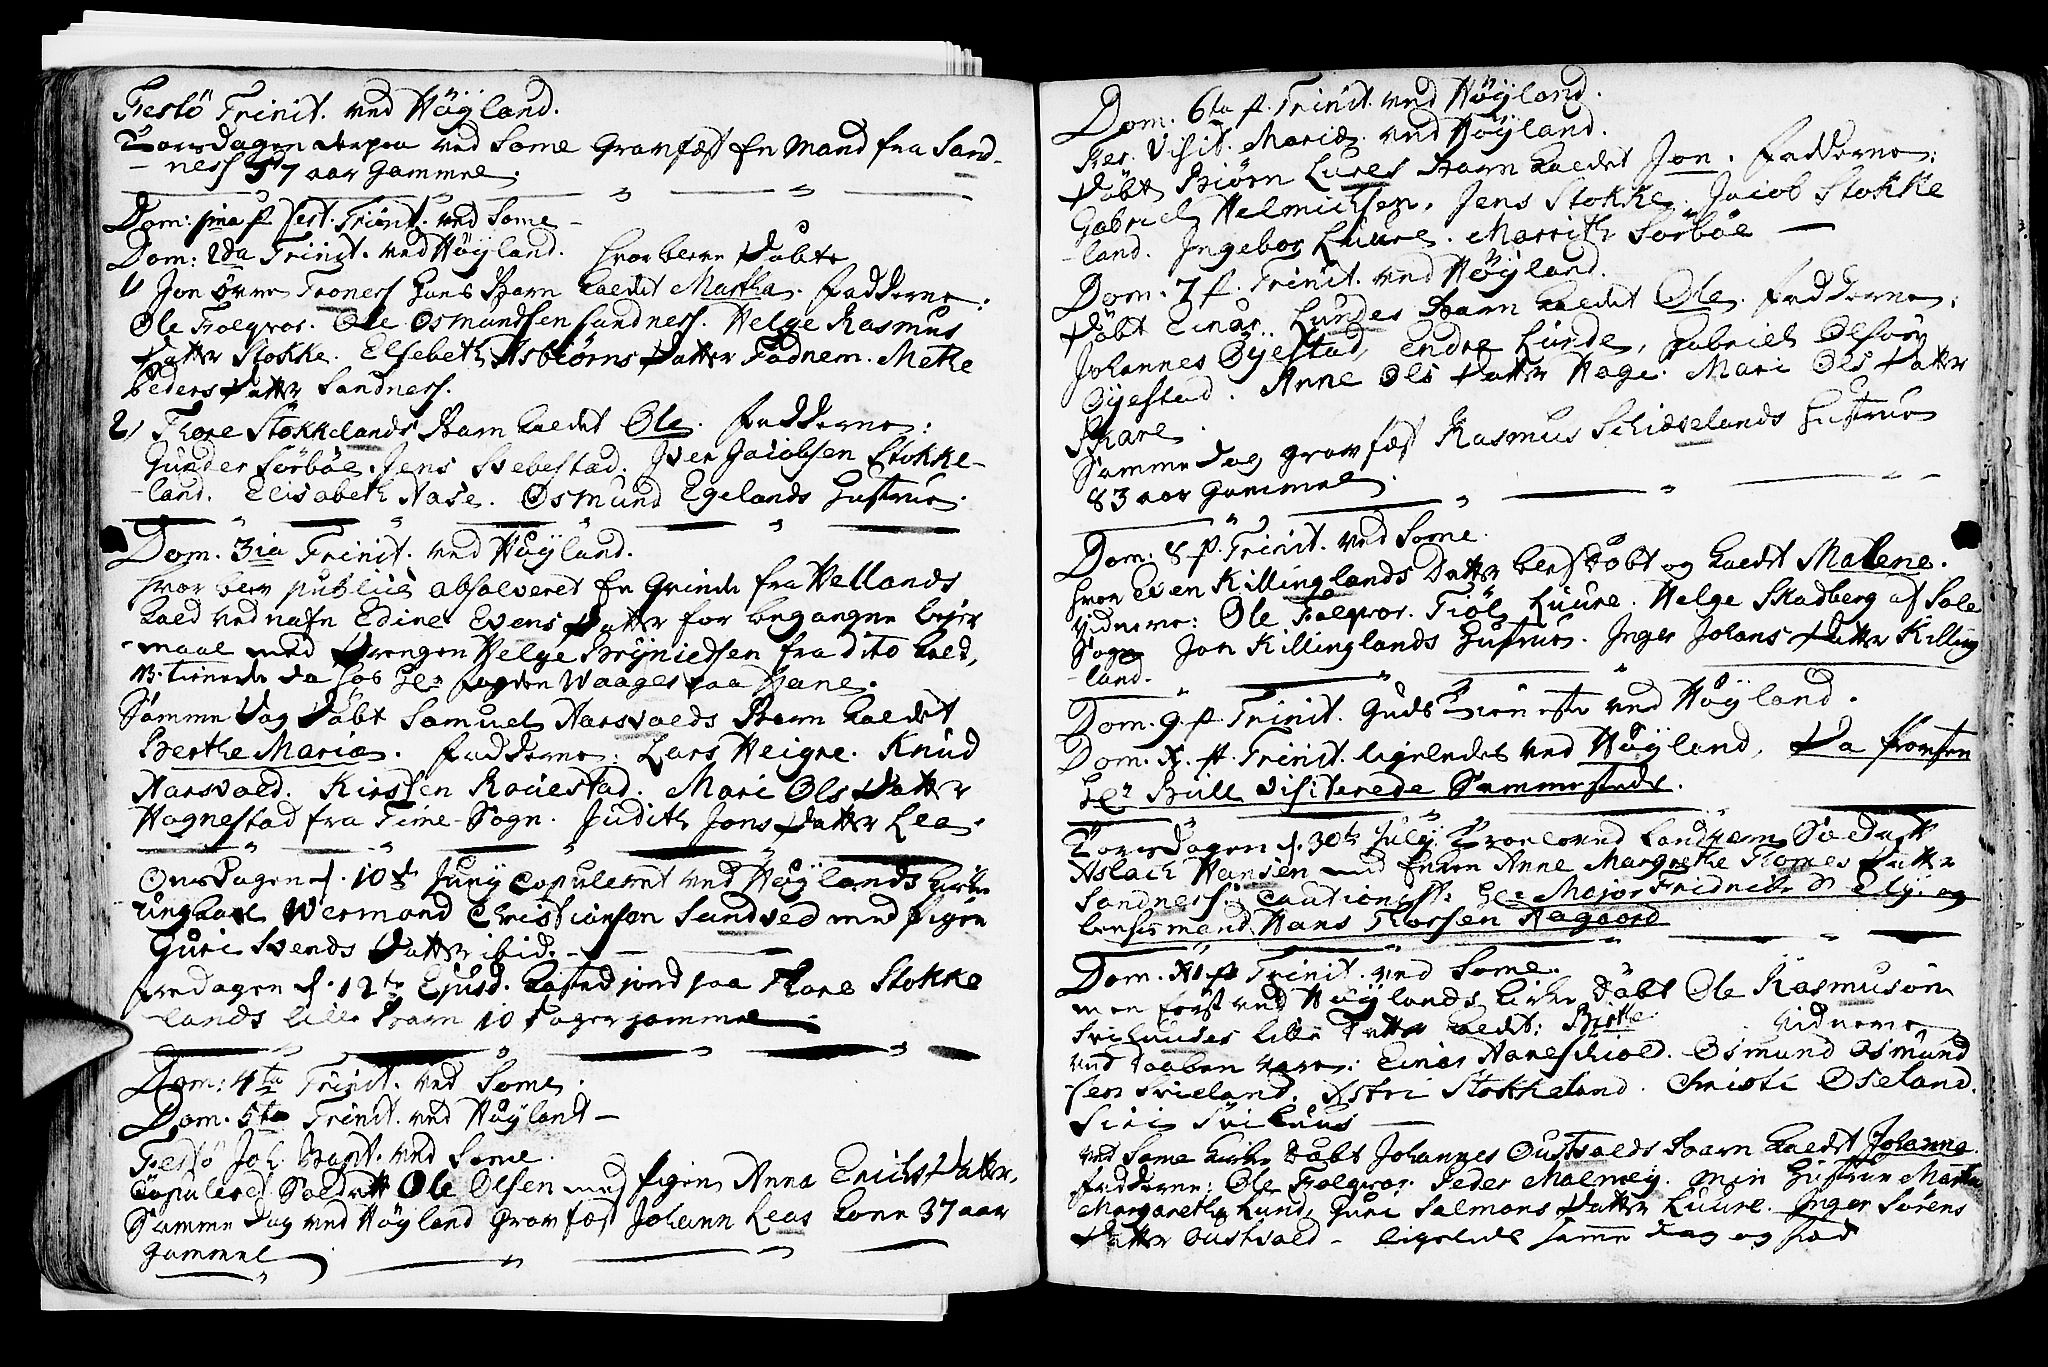 Festo Trinit. ved Höyland.
Torsdagen derpaa ved Some Gravfæst En Mand fra Sand-
-ness 57 aar Gammel.
Dom: 1ma p. fest. Trinit. ved Some -
Dom: 2da Trinit. ved Höyland. hvor bleve Döbte
1) Jon Trones hans Barn kaldet Martha. Fadderne:
Ole Folqvor. Ole Osmundsen Sandness. Helge Rasmus
Datter Stokke. Elsebeth Asbiörns Datter Fodnem. Mette
Peders Datter Sandness.
2) Thore Stokkelands Barn kaldet Ole. Fadderne:
Gunder Sörböe. Jens Svebestad. Iver Jacobsen Stokke-
-land. Elisabeth Aase. Osmund Egelands Hustrue.
Dom. 3ia Trinit. ved Höyland.
hvor blev publicé absolveret En Qvinde fra Hellands
kald ved nafn Edine Evens Datter for begangne leyer
-maal med Drengen Helge Brynieldsen fra dito kald,
tienende da hos Hr Waages paa Gane.
Samme Dag Döbt Samuel Aarsvolds Barn kaldet
Berthe Maria. Fadderne: Lars Heigre. Knud
Aarsvold. Kirsten Rouestad. Mari Ols Datter
Hognestad fra Time-Sogn. Judith Jons Datter Lea.
Onsdagen d. 10de Juny Copuleret ved Höylands kirke
ungkarl Wermond Christiansen Sandved med Pigen
Guri Svends Datter ibid. -
Fredagen d. 12te Ejusd. kasted jord paa Thore Stokke
-lands lille Barn 10 Dager gammel
Dom: 4ta Trinit. ved Some.
Dom. 5ta Trinit. ved Höyland -
Festo Joh. Bapt. ved Some.
Copuleret Soldatt Ole Olsen med Pigen Anna Erichs Datter.
Samme Dag ved Höyland Gravfæst Johann Leas kone 37 aar
Gammel
Dom. 6ta p. Trinit. ved Höyland.
Fer. Visit. Mariæ ved Höyland.
Döbt Biörn Lures Barn kaldet Jon. Fadderne:
Gabriel Helmichsen, Jens Stokke. Jacob Stokke
-land. Ingebor Luure. Marrith Sörböe -
Dom. 7 p. Trinit. ved Höyland.
Döbt Einar Lundes Barn kaldet Ole. Fadderne:
Johannes Öyestad, Endre Lunde, Gabriel Olsön
Öyestad. Anne Ols Datter Hage. Mari Ols Datter
Skare.
Samme dag gravfæst Rasmus Schiæselands Hustrue
83 aar Gammel.
Dom: 8 p. Trinit. ved Some.
hvor Even Killinglands Datter blef Döbt og kaldt Malene.
Vidnerne: Ole Folqvor. Tiöl Luure. Helge Skadberg af Sole
Sogn Jon Killinglands Hustrue. Inger Johans Datter Killing
-land.
Dom. 9. p. Trinit. Guds Tieneste ved Höyland.
Dom. X. p. Trinit. ligeledes ved Höyland, Da Provsten
Hr Bull visiterede Sammesteds.
Torsdagen d. 30te July Troeloved Soldatt
Aslach Hansen med Enken Anne Margrethe Thomes Datter
Sandness. Cautionist: Hr Major Fridrich og
lensmand Hans Thorsen Aagaard
Dom. XI p. Trinit. ved Some.
men först ved Höylands kirke Döbt Ole Rasmusön
lille Datter kaldet: Birthe. Vidnerne
ved Daaben vare: Einar Haneschiold. Osmund Osmund
-sen Svieland. Astri Stokkeland. Christi Oseland.
Siri
ved Some kirke Döbt Johannes Oustvolds Barn kaldt Johanna.
Fadderne: Ole Folqvor. Peder Malmey. min Hustrue Martha
Margaretha Lund, Guri Salmons Datter Luure. Inger Sörens
Datter Oustvold - ligeledes samme dag og sted